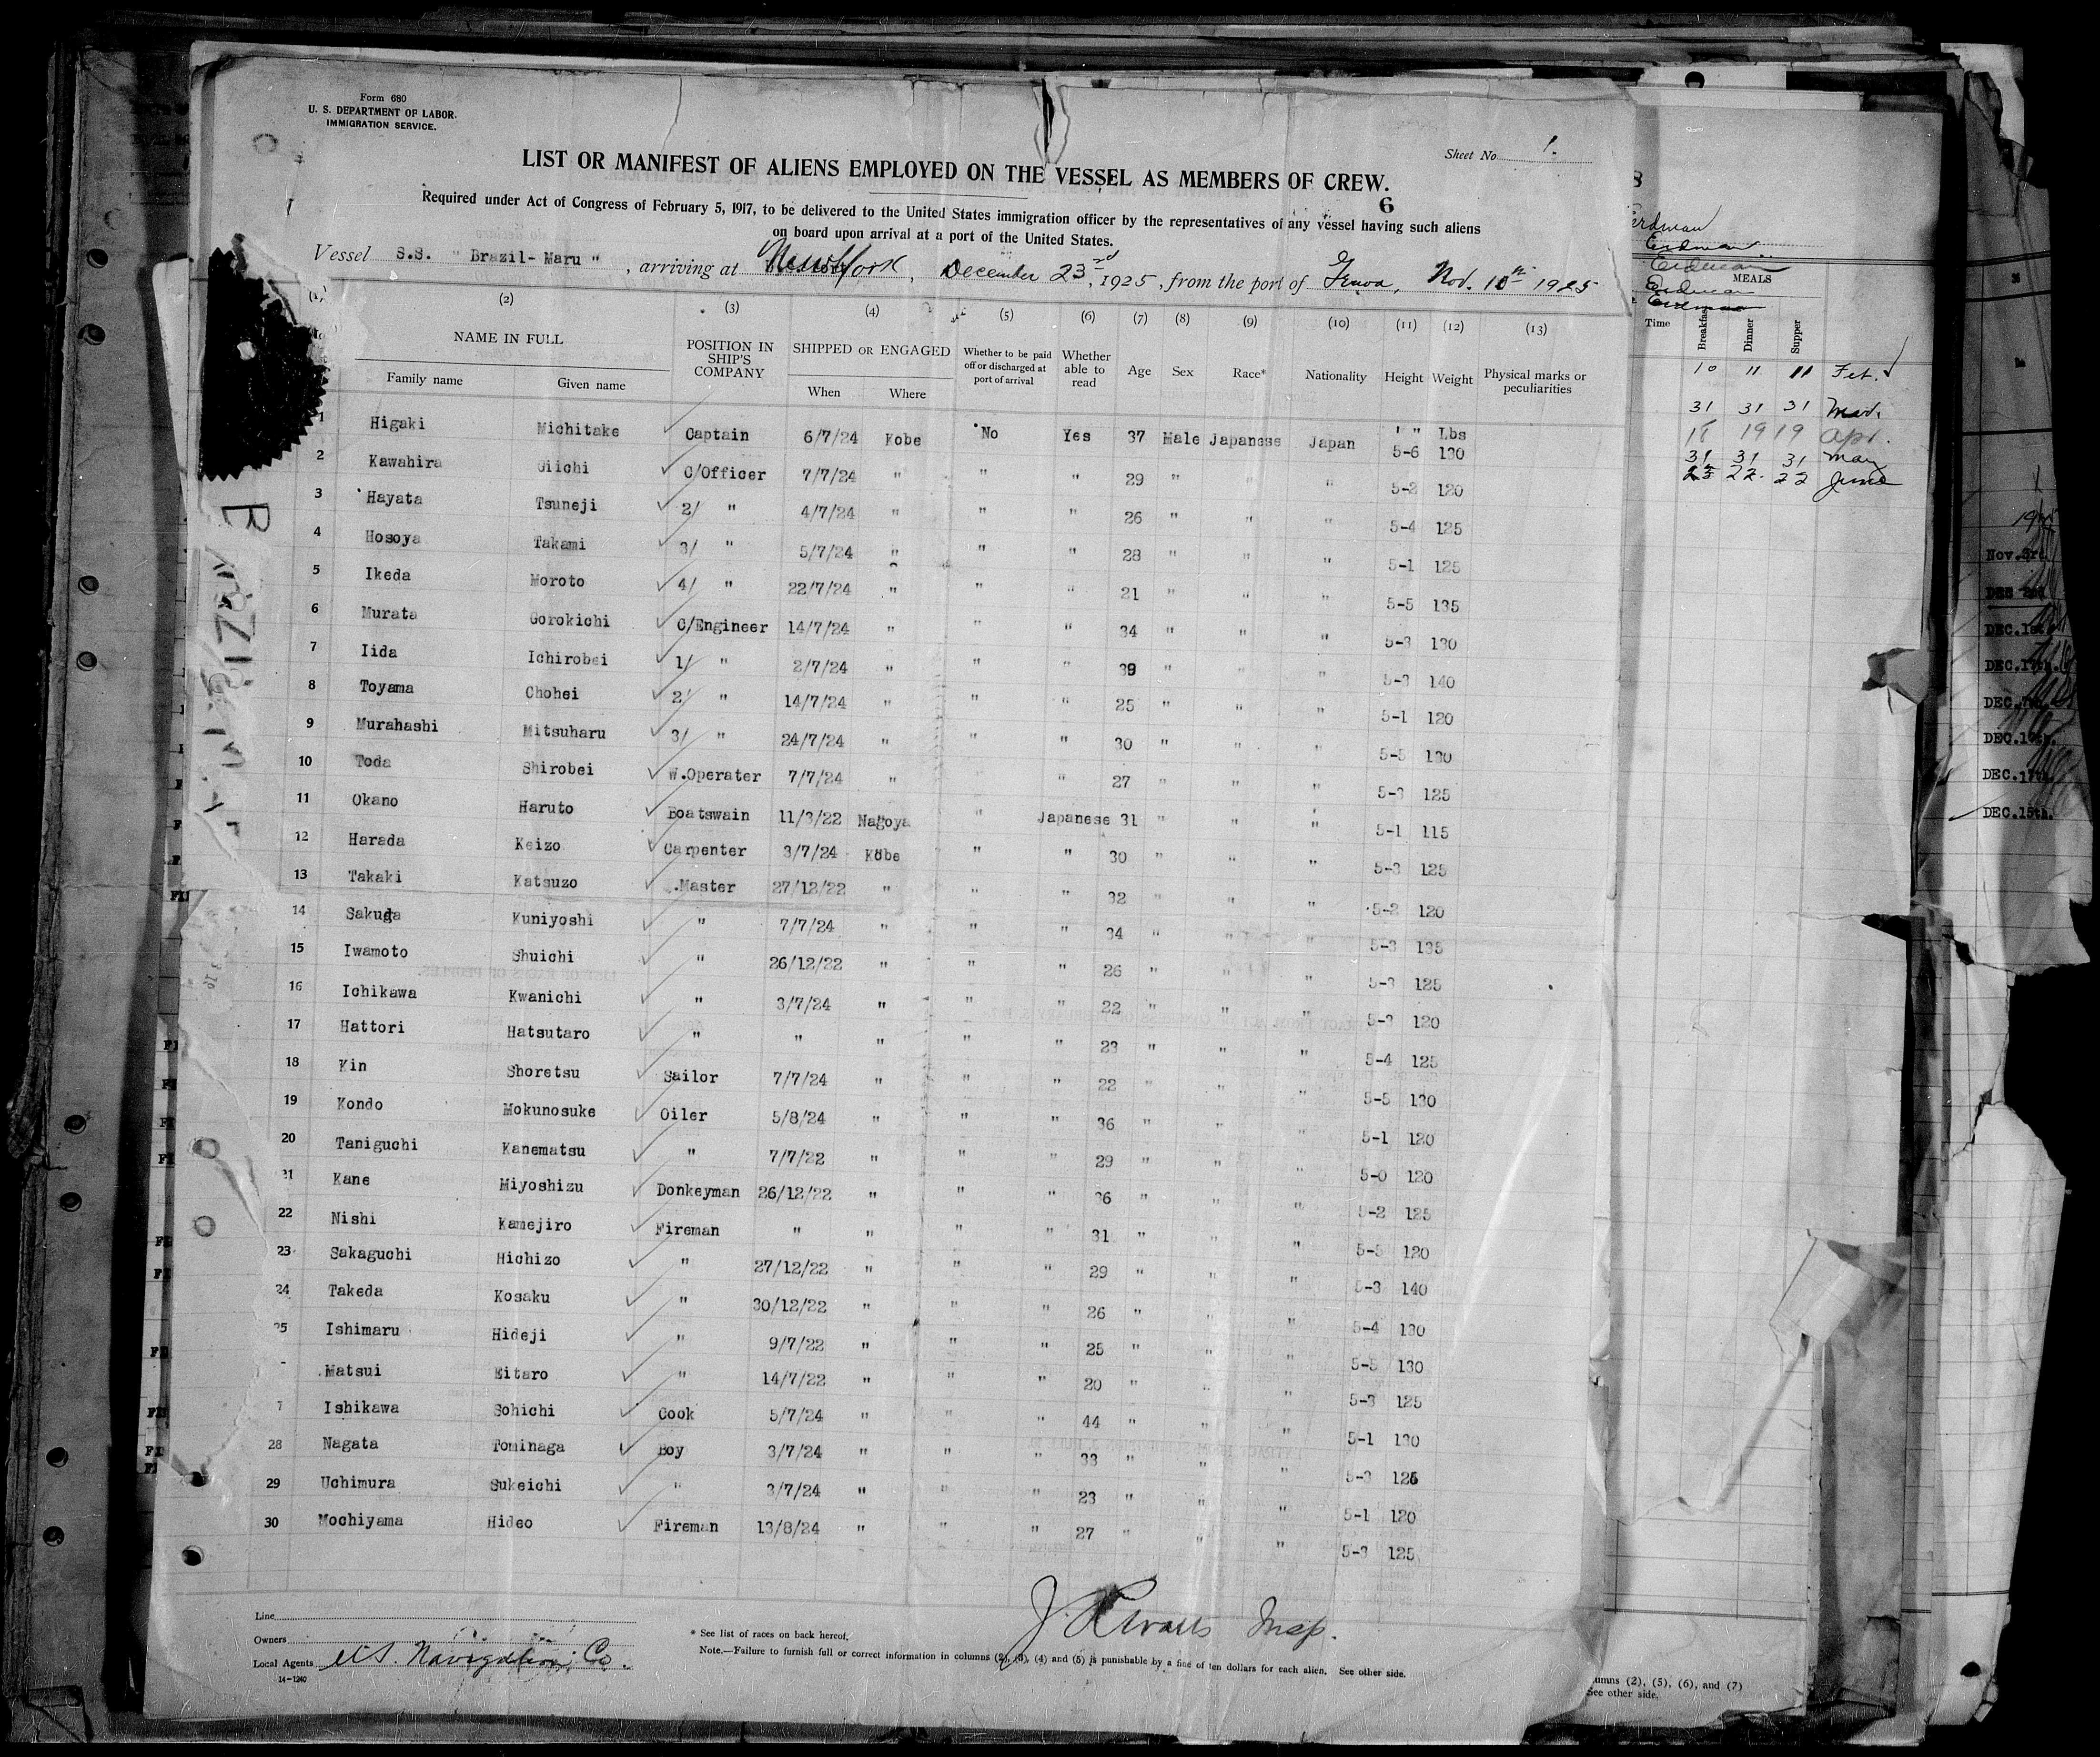 Form 680
U. S. DEPARTMENT OF LABOR.
IMMIGRATION SERVICE.
Sheet No. 1.
LIST OR MANIFEST OF ALIENS EMPLOYED ON THE VESSEL AS MEMBERS OF CREW.
6
Required under Act of Congress of February 5, 1917, to be delivered to the United States immigration officer by the representatives of any vessel having such aliens
on board upon arrival at a port of the United States.
Vessel S.S. " Brazil-Maru ", arriving at New York, December 23rd, 1925, from the port of Nov. 10th 1925
(1) (2) (3) (4) (5) (6) (7) (8) (9) (10) (11) (12) (13)
NAME IN FULL POSITION IN SHIP'S COMPANY SHIPPED OR ENGAGED Whether to be paid off or discharged at port of arrival Whether able to read Age Sex Race* Nationality Height Weight Physical marks or peculiarities
Family name Given name When Where
1 Higaki Michitake Captain 6/7/24 Kobe No Yes 37 Male Japanese Japan 5-6 130 Lbs
2 Kawahira Giichi C/Officer 7/7/24 " " " 29 " " " 5-2 120
3 Hayata Tsuneji 2/ " 4/7/24 " " " 26 " " " 5-4 125
4 Hosoya Takami 3/ " 5/7/24 " " " 28 " " " 5-1 125
5 Ikeda Moroto 4/ " 22/7/24 " " " 21 " " " 5-5 135
6 Murata Gorokichi C/Engineer 14/7/24 " " " 34 " " " 5-3 130
7 Iida Ichirobei 1/ " 2/7/24 " " " 39 " " " 5-3 140
8 Toyama Chohei 2/ " 14/7/24 " " " 25 " " " 5-1 120
9 Murahashi Mitsuharu 3/ " 24/7/24 " " " 30 " " " 5-5 130
10 Toda Shirobei W.Operater 7/7/24 " " 27 " " " 5-3 125
11 Okano Haruto Boatswain 11/3/22 Nagoya " Japanese 31 " " " 5-1 115
12 Harada Keizo Carpenter 3/7/24 Kobe " " 30 " " " 5-3 125
13 Takaki Katsuzo .Master 27/12/22 " " " 32 " " " 5-2 120
14 Sakuda Kuniyoshi " 7/7/24 " " " 34 " " " 5-3 135
15 Iwamoto Shuichi " 26/12/22 " " " 26 " " " 5-3 125
16 Ichikawa Kwanichi " 3/7/24 " " " 22 " " " 5-3 120
17 Hattori Hatsutaro " " " " " 23 " " " 5-4 125
18 Kin Shoretsu Sailor 7/7/24 " " " 22 " " " 5-5 130
19 Kondo Mokunosuke Oiler 5/8/24 " " " 36 " " " 5-1 120
20 Taniguchi Kanematsu " 7/7/22 " " " 29 " " " 5-0 120
21 Kane Miyoshizu Donkeyman 26/12/22 " " " 36 " " " 5-2 125
22 Nishi Kamejiro Fireman " " " " 31 " " " 5-5 120
23 Sakaguchi Hichizo " 27/12/22 " " " 29 " " " 5-3 140
24 Takeda Kosaku " 30/12/22 " " " 26 " " " 5-4 130
25 Ishimaru Hideji " 9/7/22 " " " 25 " " " 5-5 130
Matsui Eitaro " 14/7/22 " " " 20 " " " 5-3 125
7 Ishikawa Sohichi Cook 5/7/24 " " " 44 " " " 5-1 130
28 Nagata Tominaga Boy 3/7/24 " " " 33 " " " 5-3 125
29 Uchimura Sukeichi " 3/7/24 " " " 23 " " " 5-1 120
30 Mochiyama Hideo Fireman 13/8/24 " " " 27 " " " 5-3 125
Line
Owners
Local Agents U.S. Navigation Co.
14-1240
* See list of races on back hereof.
Note.—Failure to furnish full or correct information in columns (2), (3), (4) and (5) is punishable by a fine of ten dollars for each alien. See other side.
Insp.
Erdman
Erdman
Erdman
Erdman
Erdman
MEALS
Time Breakfast Dinner Supper
10 11 11 Feb.
31 31 31 Mar.
18 19 19 Apr.
31 31 31 May
23 22 22 June
umns (2), (5), (6), and (7)
See other side.
Nov. 3rd.
DEC. 1st.
DEC. 17th.
DEC. 7th.
DEC. 17th.
DEC. 17th.
DEC. 15th.